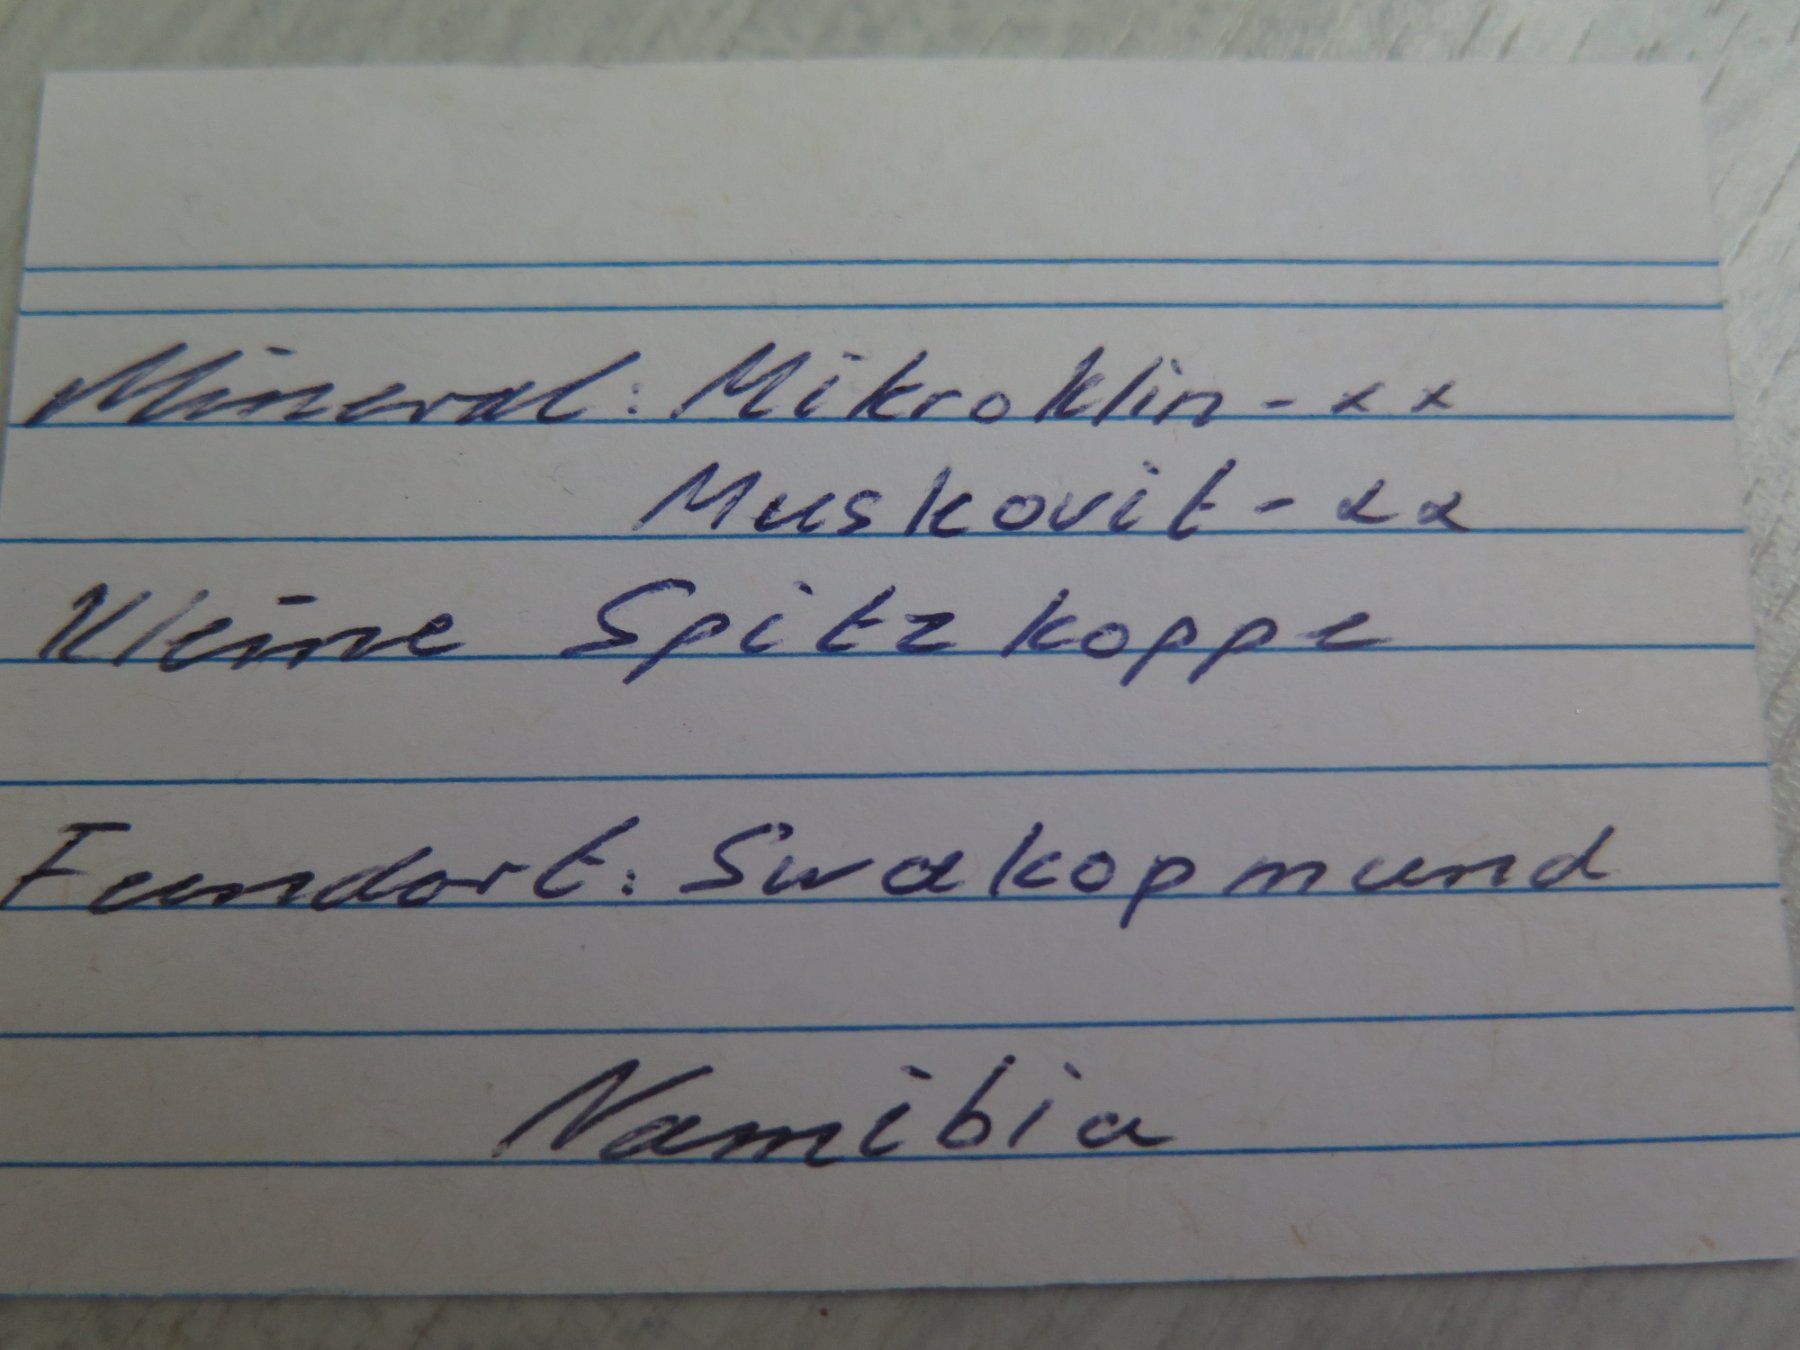 Mineral: Mikroklin - xx
Muskovit - xx
Kleine Spitzkoppe
Fundort: Swakopmund
Namibia